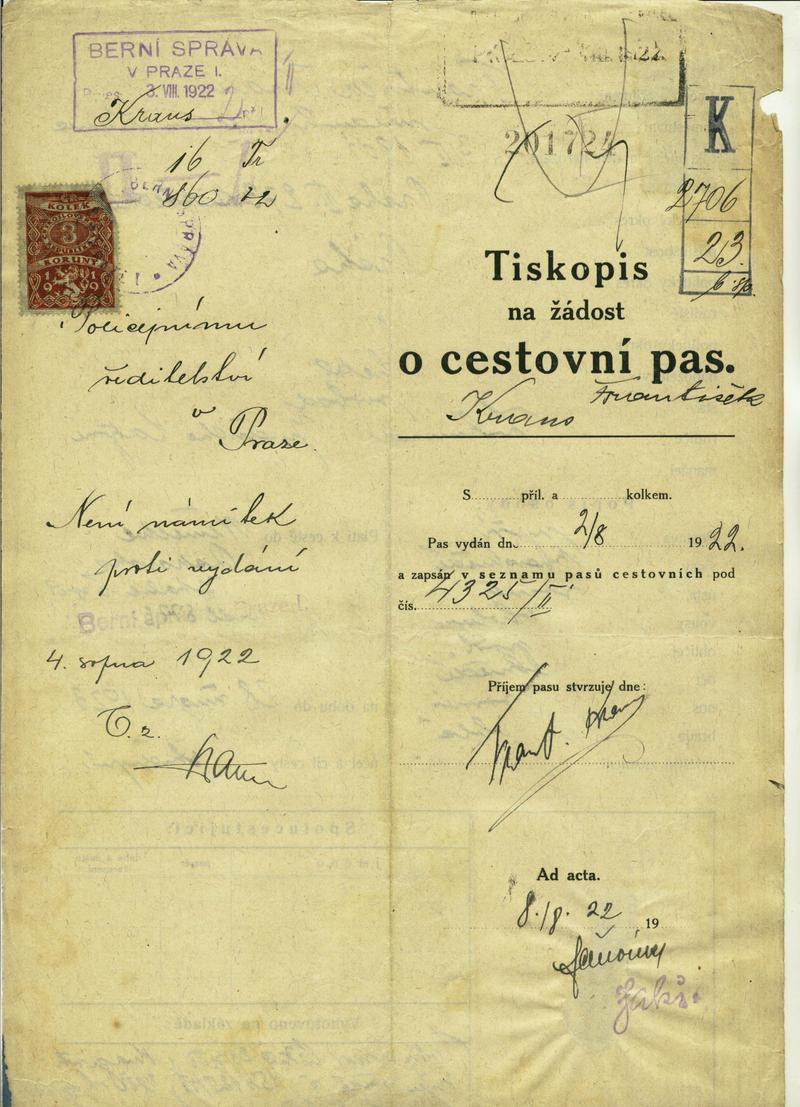 BERNÍ SPRÁVA
V PRAZE I.
3. VIII. 1922
Kraus
16
860
BERNÍ SPRÁVA
KOLEK
3
KORUNY
1919
Policejnímu
ředitelství
v Praze.
Není námitek
proti vydání
4. srpna 1922
201724
K
2706
23
Tiskopis
na žádost
o cestovní pas.
Kraus František
S příl. a kolkem.
Pas vydán dne 2/8 1922.
a zapsán v seznamu pasů cestovních pod
čís. 4325/II.
Příjem pasu stvrzuje dne:
Frant. Kraus
Ad acta.
8./8. 22 19